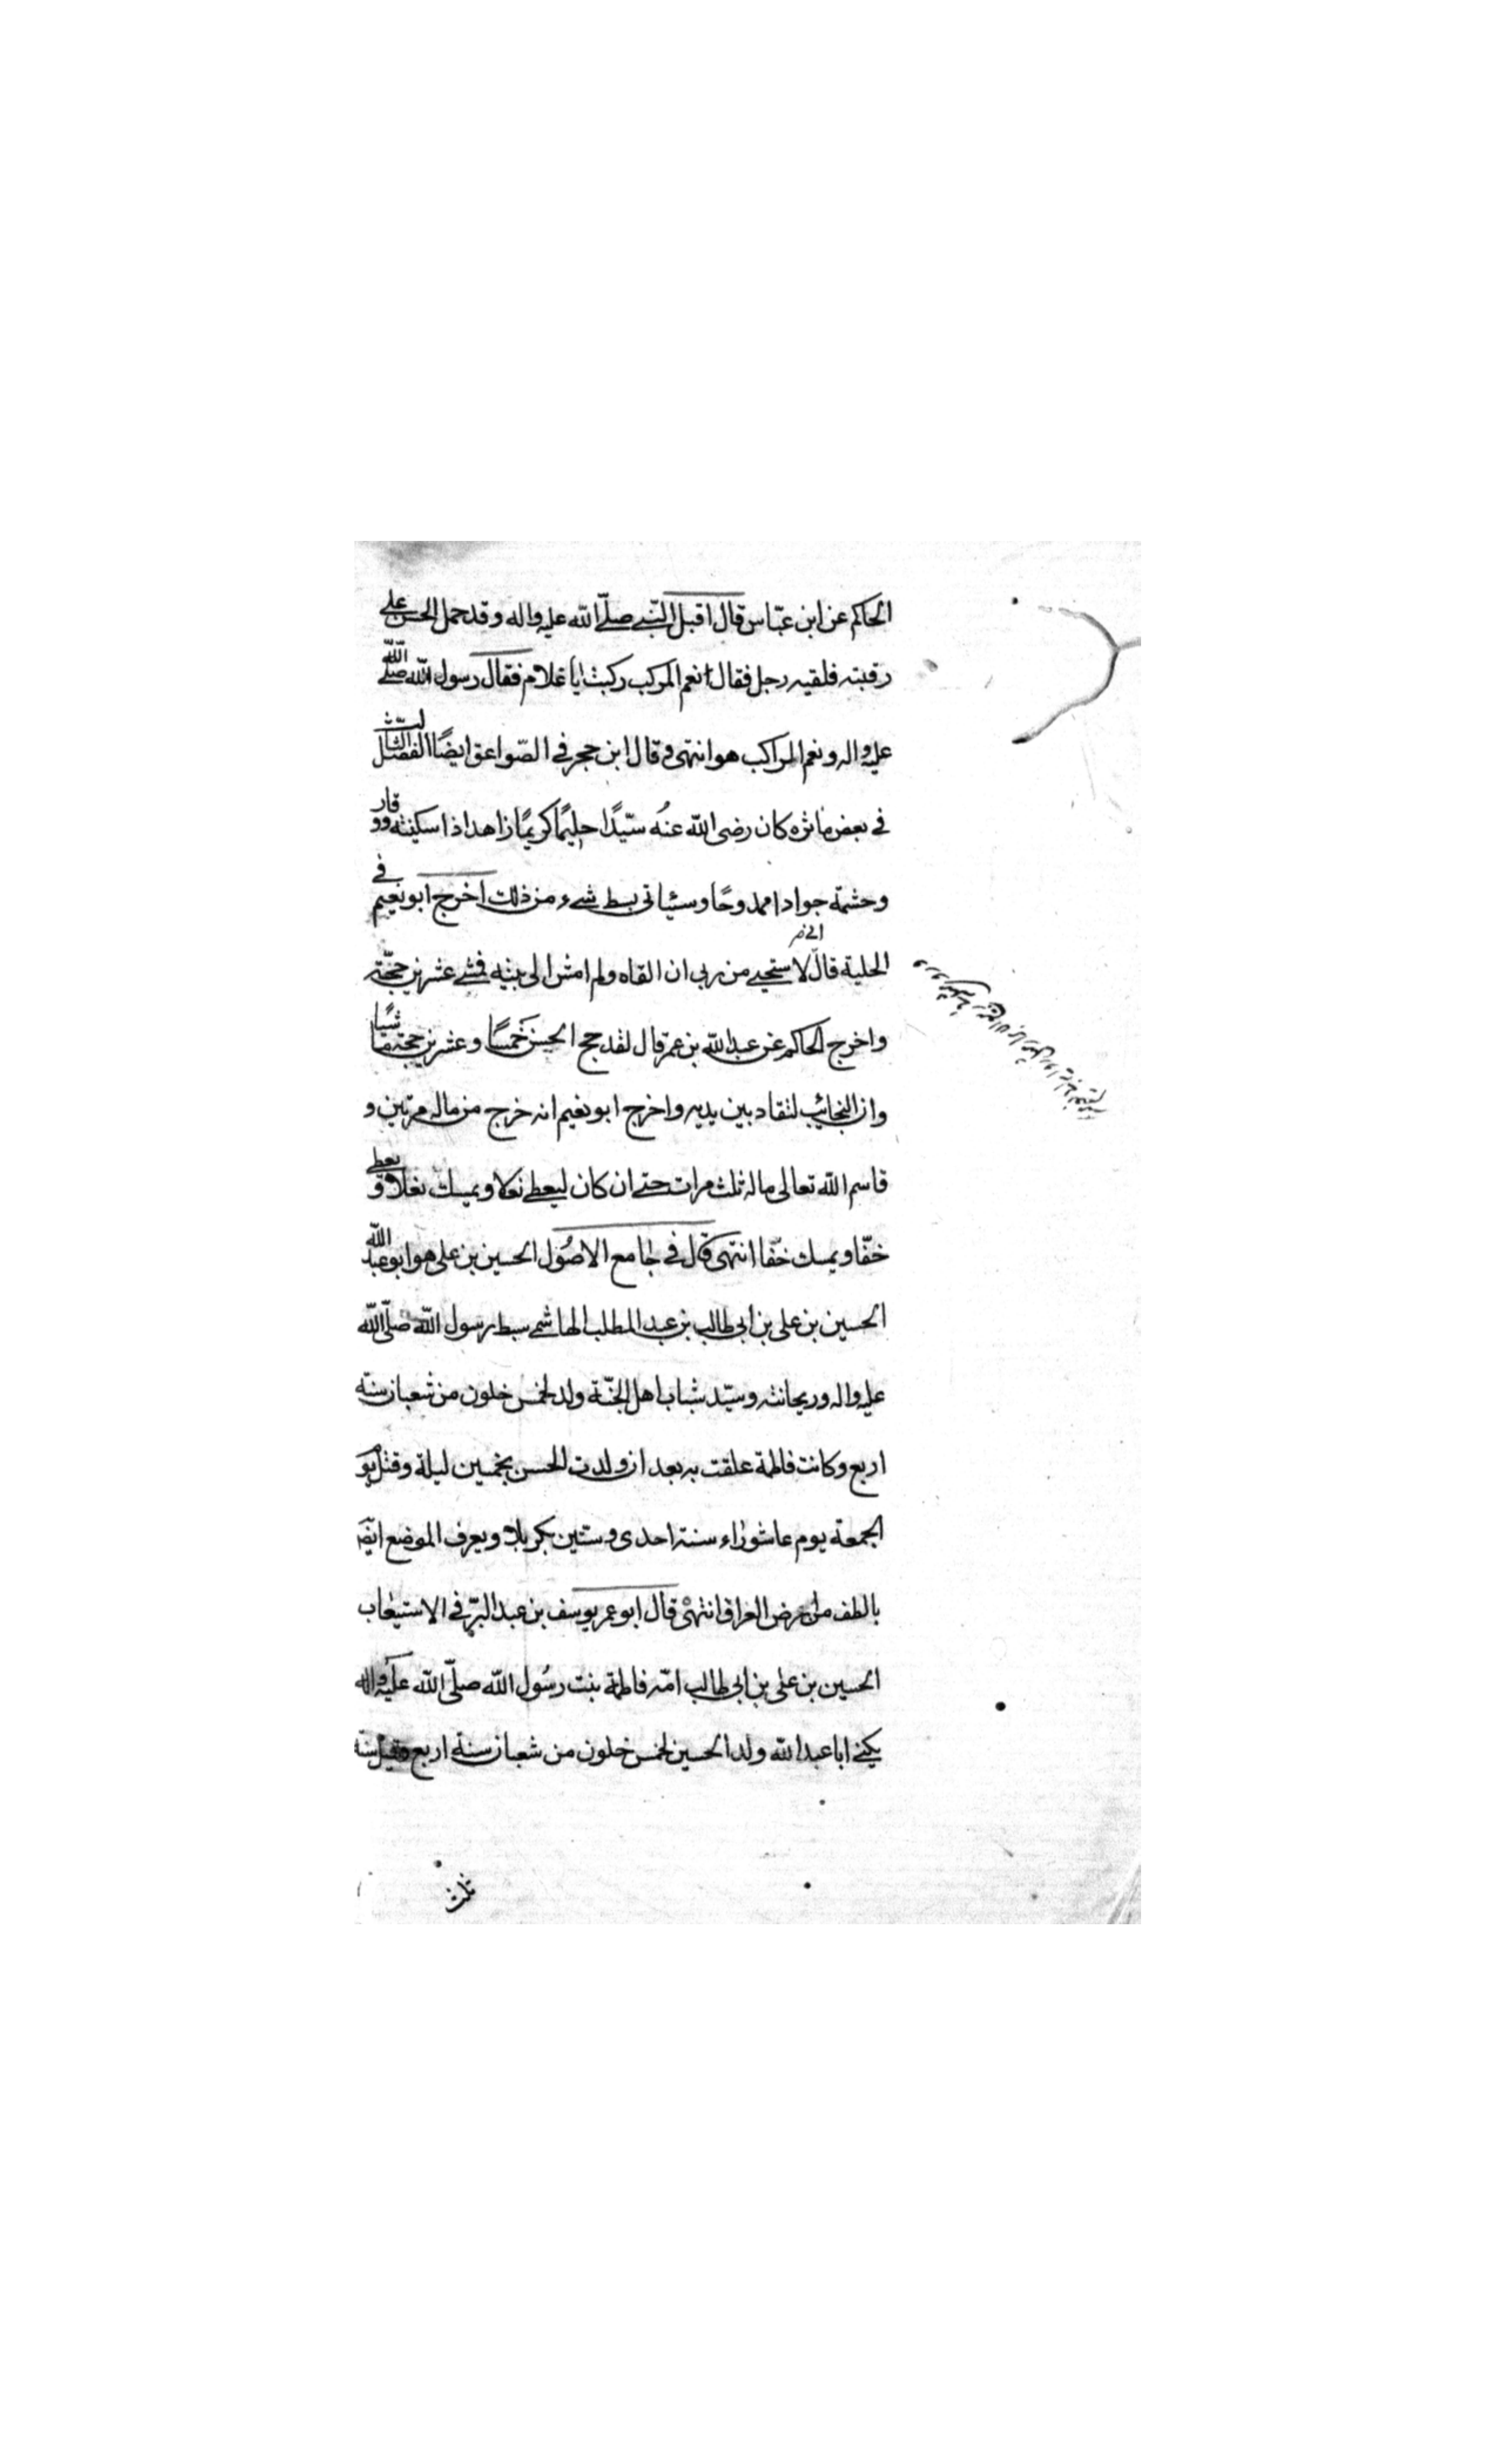 الحاكم عن ابن عبّاس قال اقبل النّبي صلّى الله عليه واله وقد حمل الحسن على
رقبته فلقيه رجل فقال نعم المركب ركبت يا غلام فقال رسول الله صلّى الله
عليه واله ونعم الراكب هو انتهى وقال ابن حجر في الصّواعق ايضًا الفصل الثالث
في بعض ماثره كان رضى الله عنه سيّدًا حليمًا كريمًا زاهدا ذا سكينة ووقار
وحشمة جوادا ممدوحًا وسيئاتى بسط شىء من ذلك اخرج ابو نعيم في
الحلية قال انى لاستحيى من ربى ان القاه ولم امش الى بيته فمشى عشرين حجّة
واخرج الحاكم عن عبد الله بن عمر قال لقد حج الحسن خمسًا وعشرين حجة ماشيًا
وان النجائب لتقاد بين يديه واخرج ابو نعيم انه خرج من ماله مرتين و
قاسم الله تعالى ماله ثلث مرات حتى ان كان ليعطى نعلا ويمسك نعلا ويعطى
خفّا ويمسك خفّا انتهى قال في جامع الاصول الحسين بن على هو ابو عبد الله
الحسين بن على بن ابى طالب بن عبد المطلب الهاشمى سبط رسول الله صلّى الله
عليه واله وريحانته وسيّد شباب اهل الجنّة ولد لخمس خلون من شعبان سنة
اربع وكانت فاطمة علقت به بعد ان ولدت الحسن بخمسين ليلة وقتل يوم
الجمعة يوم عاشوراء سنة احدى وستين بكربلا ويعرف الموضع ايضا
بالطف من ارض العراق انتهى قال ابو عمر يوسف بن عبد البرّ في الاستيعاب
الحسين بن على بن ابى طالب امّه فاطمة بنت رسول الله صلّى الله عليه واله
يكنى ابا عبد الله ولد الحسين لخمس خلون من شعبان سنة اربع وقيل سنة
ثلث